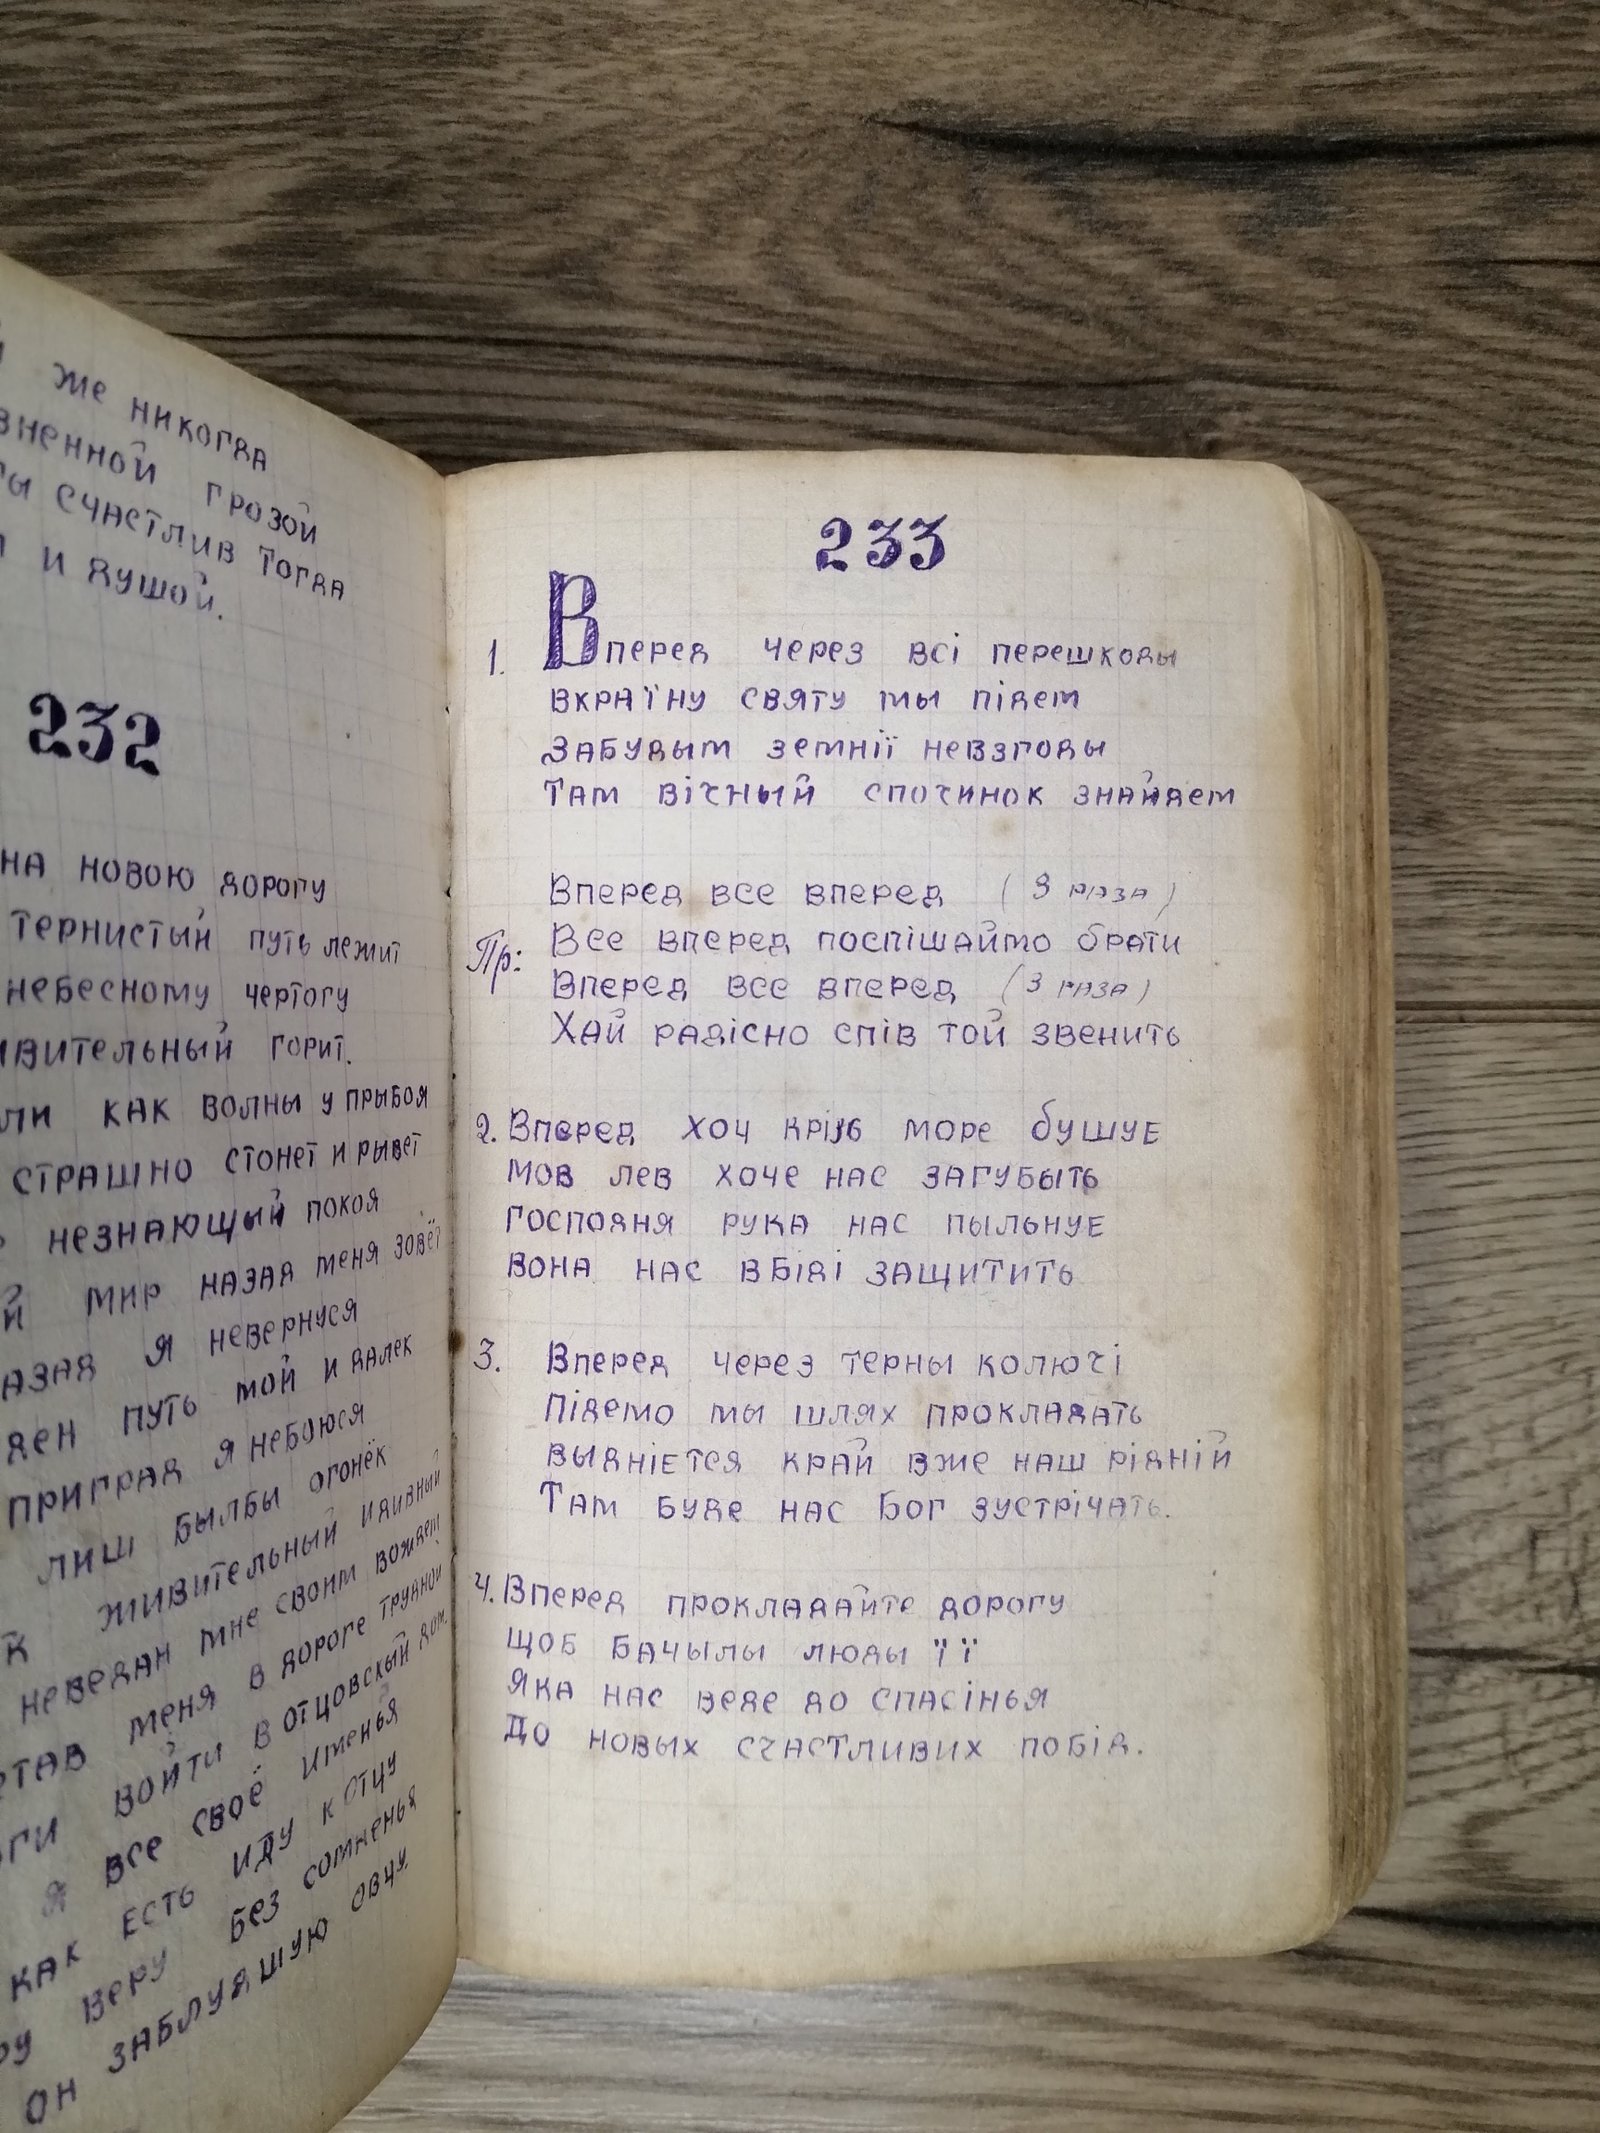 же никогда
грозой
счастлив тогда
и душой.
232
на новою дорогу
тернистый путь лежит
небесному чертогу
горит.
как волны у прыбоя
страшно стонет и рывет
незнающый покоя
мир назад меня зовёт
я невернуся
путь мой и далек
приград я небоюся
лиш былбы огонёк
живительный идивный
неведан мне своим вождем
меня в дороге трудной
войти в отцовский дом.
я все своё именья
как есть иду к отцу
веру без сомненья
он заблудшую овцу.
233
1. Вперед через всі перешкоды
вкраїну святу мы підем
Забудым земнії невзгоды
там вічный спочинок знайдем
Вперед все вперед (3 раза)
Пр: Все вперед поспішаймо брати
Вперед все вперед (3 раза)
Хай радісно спів той звенить
2. Вперед хоч крізь море бушує
мов лев хоче нас загубыть
господня рука нас пыльнує
вона нас вбіді защитить
3. Вперед через терны колючі
підемо мы шлях прокладать
выднієтся край вже наш рідній
Там буде нас Бог зустрічать.
4. Вперед прокладайте дорогу
щоб бачылы люды її
яка нас веде до спасінья
До новых счастливих побід.